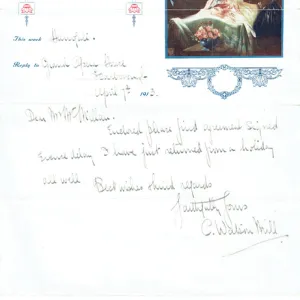 This week
Reply to
April 7th 191
Dear Mr McWillan.
Enclosed please find agreement signed
Excuse delay I have just returned from a holiday
all well. Best wishes kind regards
Faithfully Yours
C. Watson Mill